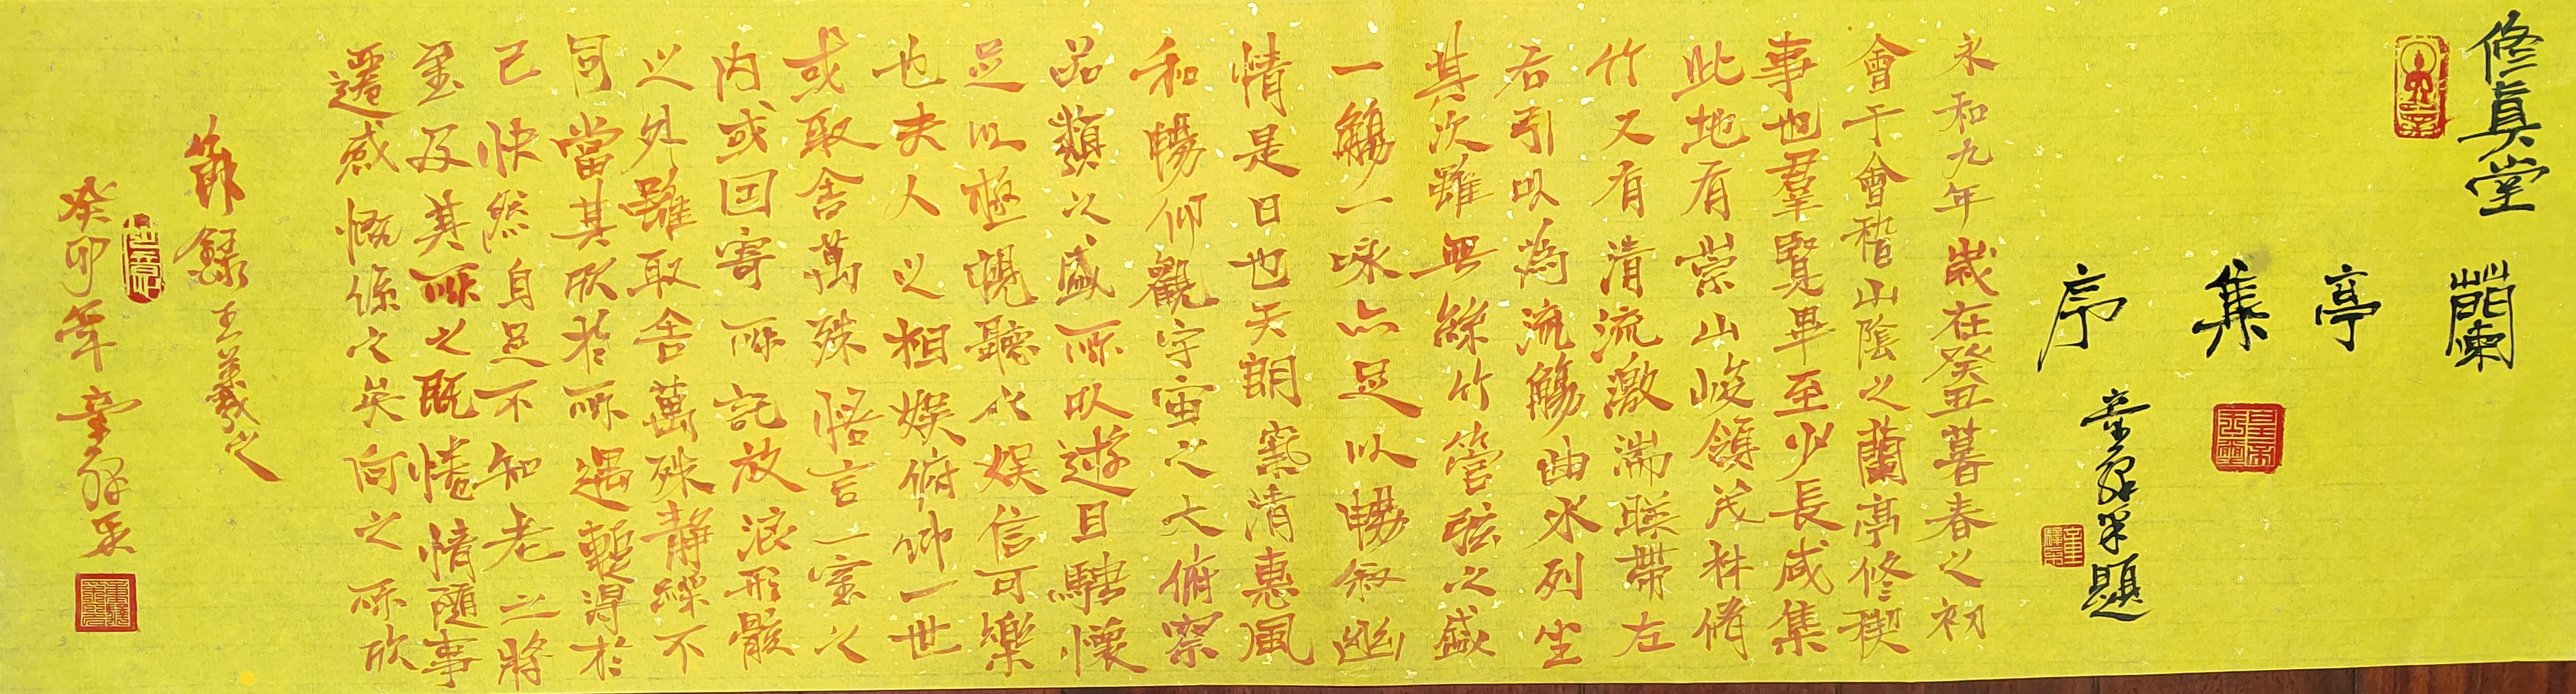 修真堂
蘭亭集序
題
永和九年歲在癸丑暮春之初
會于會稽山陰之蘭亭修禊
事也羣賢畢至少長咸集
此地有崇山峻領茂林脩
竹又有清流激湍暎帶左
右引以為流觴曲水列坐
其次雖無絲竹管弦之盛
一觴一詠亦足以暢敘幽
情是日也天朗氣清惠風
和暢仰觀宇宙之大俯察
品類之盛所以遊目騁懷
足以極視聽之娛信可樂
也夫人之相娛俯仰一世
或取舍萬殊悟言一室之
內或因寄所託放浪形骸
之外雖取舍萬殊靜躁不
同當其欣於所遇暫得於
己快然自足不知老之將
至及其所之既惓情隨事
遷感慨係之矣向之所欣
節錄王羲之
癸卯年章